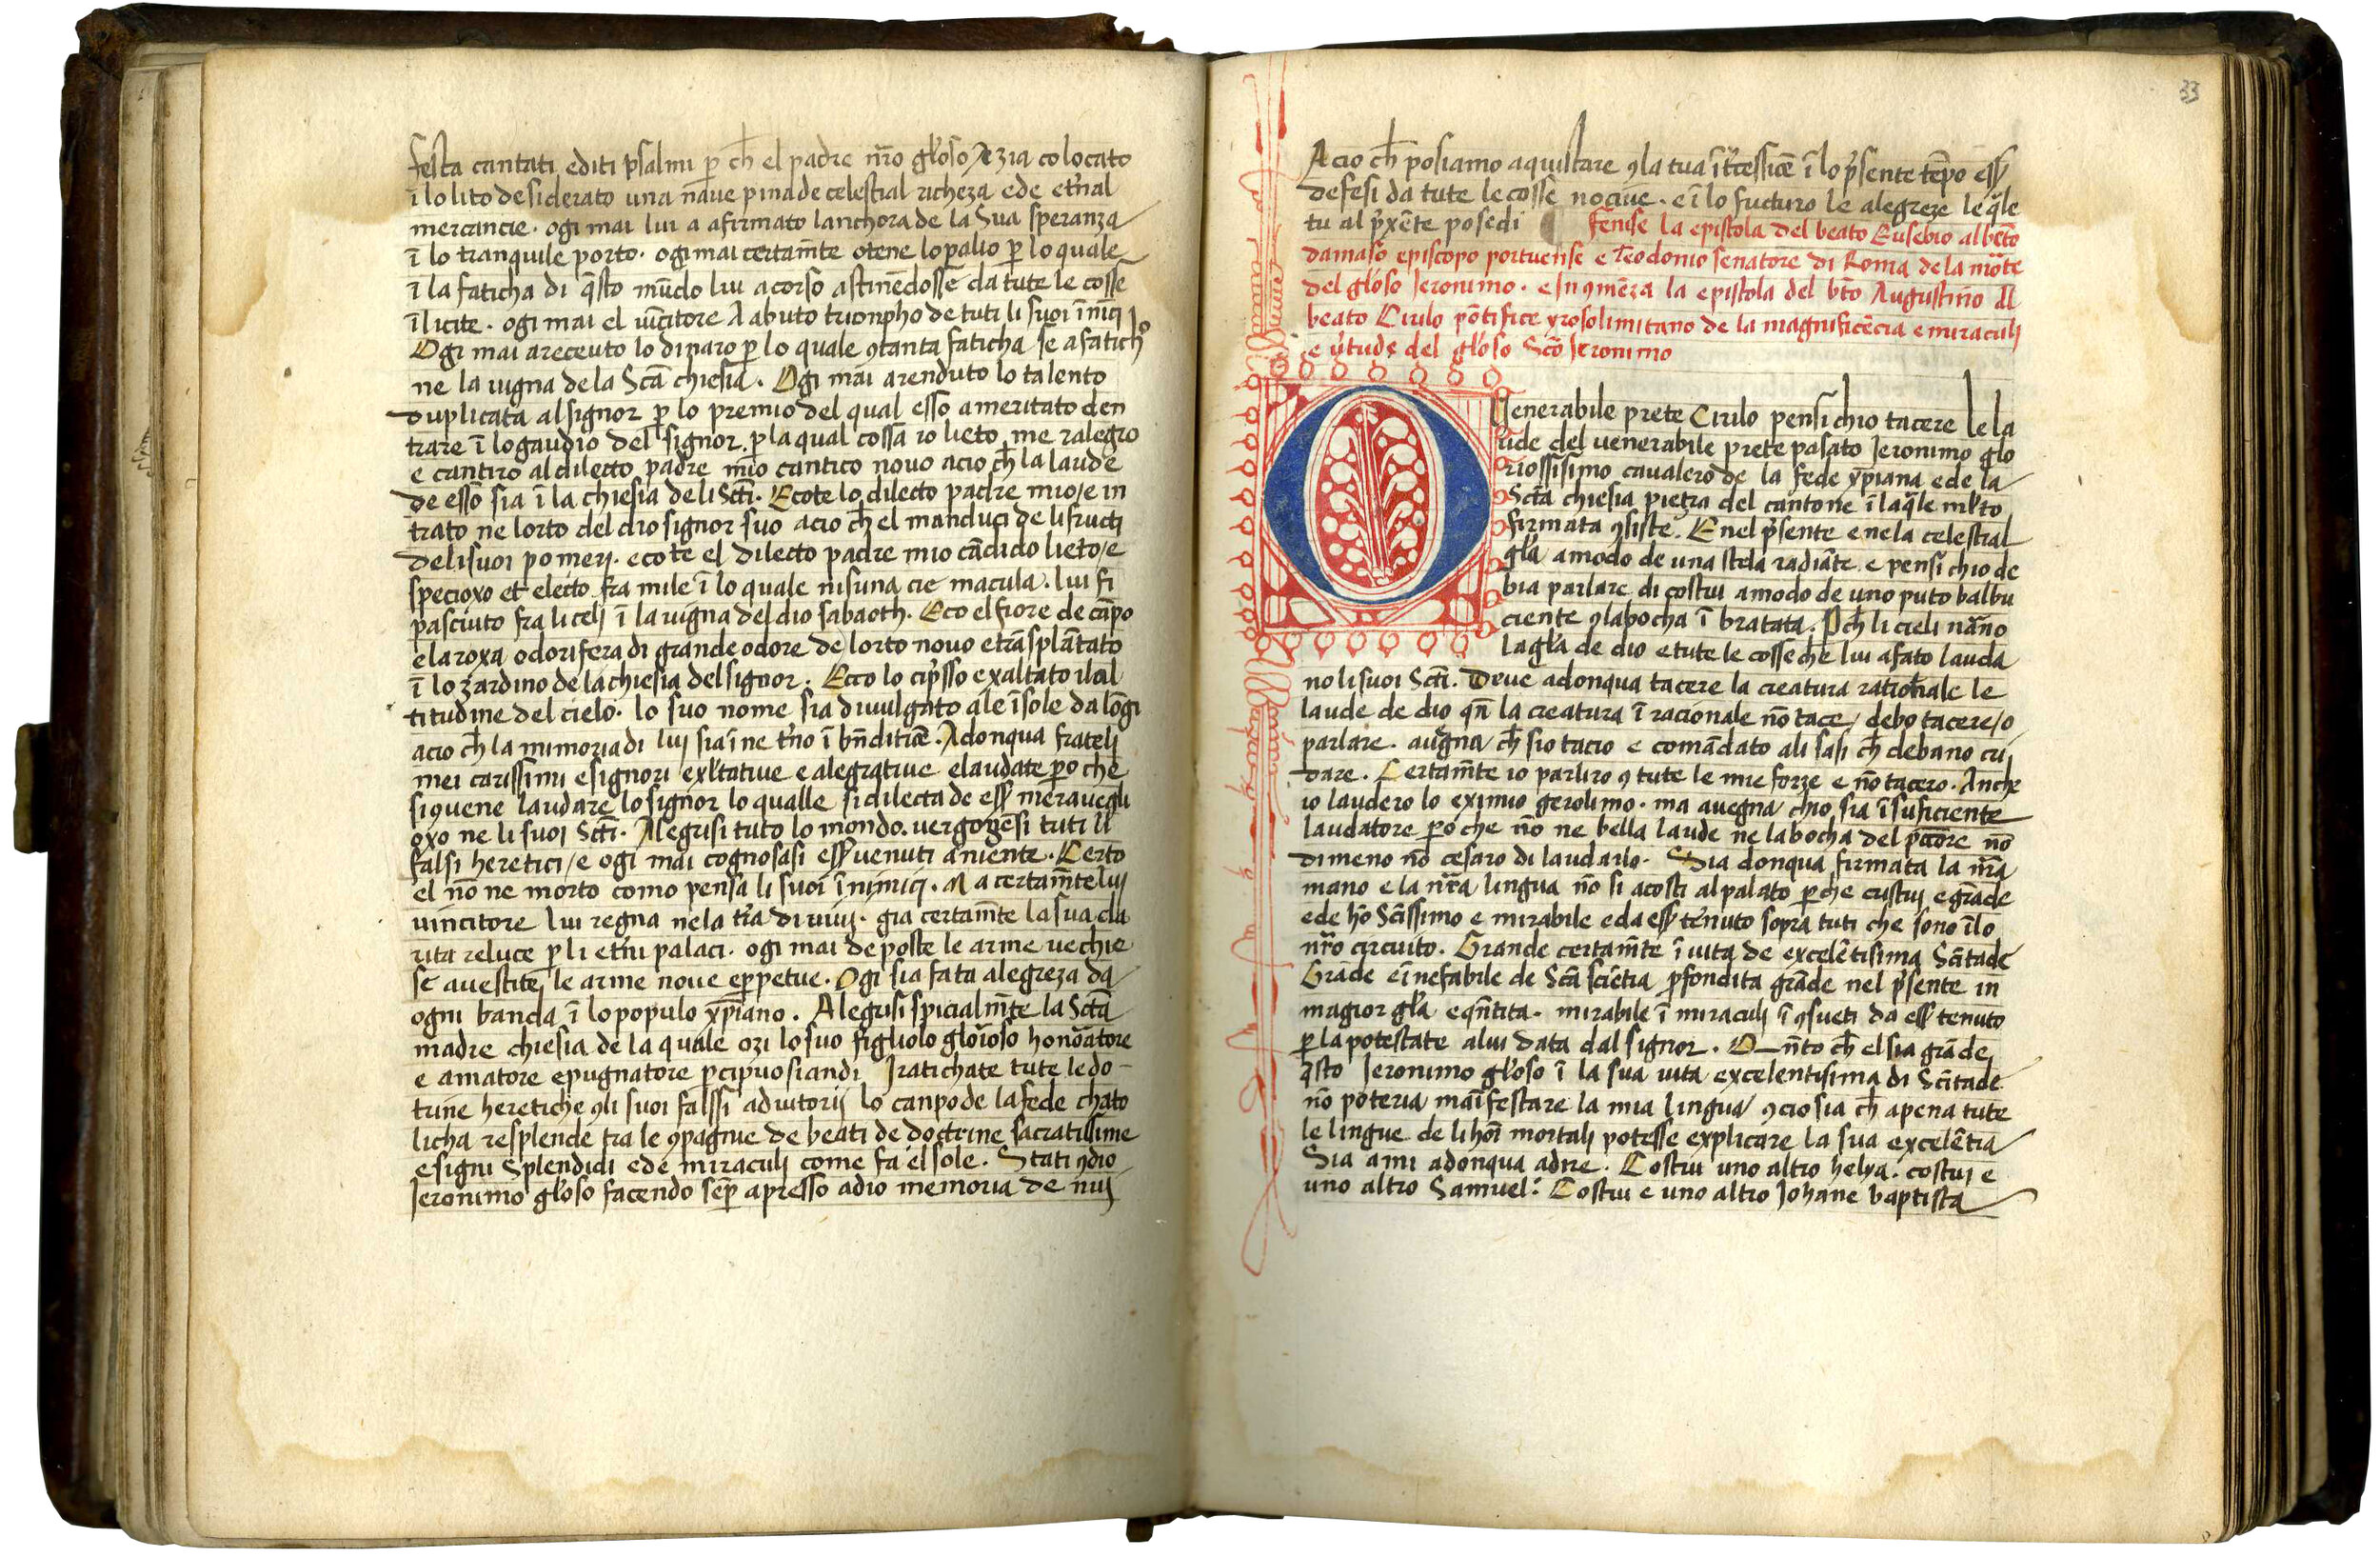 festa cantati editi psalmi p ch̄ el padre nr̄o gl'oso Ieʒia colocato
ī lo lito desiderato una naue pina de celestial richeza ede et'nal
mercancie . ogi mai lui a afirmato lanchora de la Sua speranza
ī lo tranquile porto . ogi mai certam̄te otene lo palio p lo quale
ī la faticha di q̄sto mūdo lui acorso astinēdosse da tute le cosse
īlicite . ogi mai el uīcitore A abuto trionpho de tuti li suoi īnīci
Ogi mai areceuto lo dinaro p lo quale ꝯtanta faticha se afatich°
ne la uigna de la Sc̄a chiesia . Ogi mai arenduto lo talento
duplicata al signor p lo premio del qual esso ameritato den
trare ī lo gaudio del signor . p la qual cossa io lieto me ralegro
e cantiro al dilecto padre mio cantico nouo acio ch̄ la laude
de esso sia ī la chiesia de li Sct̄i . Ecote lo dilecto padre mio/e in
trato ne lorto del dio signor suo acio ch̄ el manduci de li fructi
de li suoi pomerj . ecote el dilecto padre mio cādido lieto/e
specioxo et electo fra mile ī lo quale nisuna cie macula . lui fi
pasciuto fra li celj ī la uigna del dio sabaoth . Eco el fiore de cāpo
e la roxa odorifera di grande odore de lorto nouo e trāsplātato
ī lo zardino de la chiesia del signor . Ecco lo cip'sso exaltato ī la al
titudine del cielo . lo suo nome sia diuulgato ale īsole da lōgi
acio ch̄ la mimoria di luj sia ī ne t'no ī bn̄ditiōe . Adonqua fratelj
mei carissimi e signori exl'tatiue e alegratiue e laudate po che
si ꝯuene laudare lo signor lo qualle si dilecta de ess' merauegli
oxo ne li suoi Sct̄i . Alegrisi tuto lo mondo . uergognēsi tuti li
falsi heretici/e ogi mai cognosasi ess' uenuti a niente . Certo
el nō ne morto como pensa li suoi īnimicj . Ma certam̄te luj
uincitore lui regna nela t'ra di uiuj . gia certam̄te la sua cla
rita reluce p li et'ni palaci . ogi mai deposte le arme uechie
se auestite le arme noue e ppetue . Ogi sia fata alegreza da
ogni banda ī lo populo xp̄iano . Alegrisi spicialm̄te la Sct̄a
madre chiesia de la quale ozi lo suo figliolo gloioso honoatore
e amatore e pugnatore pcipuo siandi Iratichate tute le do-
trine heretiche ꝯli suoi falssi adiutorij lo canpo de la fede chato
licha resplende tra le ꝯpagnie de beati de doctrine sacratissime
e signi splendidi e de miraculj come fa el sole . Stati ꝯdio
Ieronimo gl'oso facendo sēp apresso a dio memoria de nuj
33
Acio ch̄ posiamo aquistare ꝯ la tua īt'cessiōe ī lo p'sente tēpo ess'
defesi da tute le cosse nociue . e ī lo fucturo le alegreze le q̄le
tu al p'xēte posedi fenise la epistola del beato Eusebio al beto
damaso episcopo portuense e Teodonio senatore di Roma de la morte
del gl'oso Ieronimo . e In ꝯmēza la epistola del bt̄o Augustino Al
beato Cirulo pōtifice yrosolimitano de la magnificēcia e miraculj
e u'tude del gl'oso Sc̄o Ieronimo
O Venerabile prete Cirulo pensi chio tacere le la
ude del uenerabile prete pasato Ieronimo glo
riossisimo caualero de la fede xp̄iana e de la
Sct̄a chiesia pietra del cantone ī la q̄le ml'to
firmata ꝯsiste . E nel p'sente e nela celestial
gl'a amodo de una stela radiāte e pensi chio de
bia parlare di costui amodo de uno puto balbu
ciente ꝯ la bocha ī bratata . Pch̄ li cieli narāno
la gl'a de dio e tute le cosse che lui a fato lauda
no li suoi Sct̄i . Deue adonqua tacere la creatura rationale le
laude de dio qn̄ la creatura ī racionale nō tace / debo tacere/o
parlare . auegna ch̄ sio tacio e comādato ali sasi ch̄ debano cri
dare . Certam̄te io parliro ꝯ tute le mie forze e nō tacero . Anche
io laudero lo eximio gerolimo . ma auegna chio sia īsuficiente
laudatore po che nō ne bella laude ne la bocha del pcatore nō
dimeno nō cesaro di laudarlo . Sia donqua firmata la nr̄a
mano e la nr̄a lingua nō si acosti al palato pche custuj e grāde
e de hō Scīssimo e mirabile e da ess' tenuto sopra tuti che sono ī lo
nr̄o circuito . Grande certam̄te ī uita de excelētisima Sātade
Grāde e īnefabile de Sc̄a sciētia pfondita grāde nel p'sente in
magior gl'a e qn̄tita . mirabile ī miraculj īꝯsueti da ess' tenuto
p la potestate a lui data dal signor . Qn̄to ch̄ el sia grāde
q̄sto Ieronimo gl'oso ī la sua uita excelentisima di Scītade
nō poteria manifestare la mia lingua ꝯcio sia ch̄ apena tute
le lingue de li hoī mortalj potesse explicare la sua excelētia
Sia a mi adonqua adire . Costui uno altro helya . costuj e
uno altro Samuel . Costui e uno altro Iohane baptista